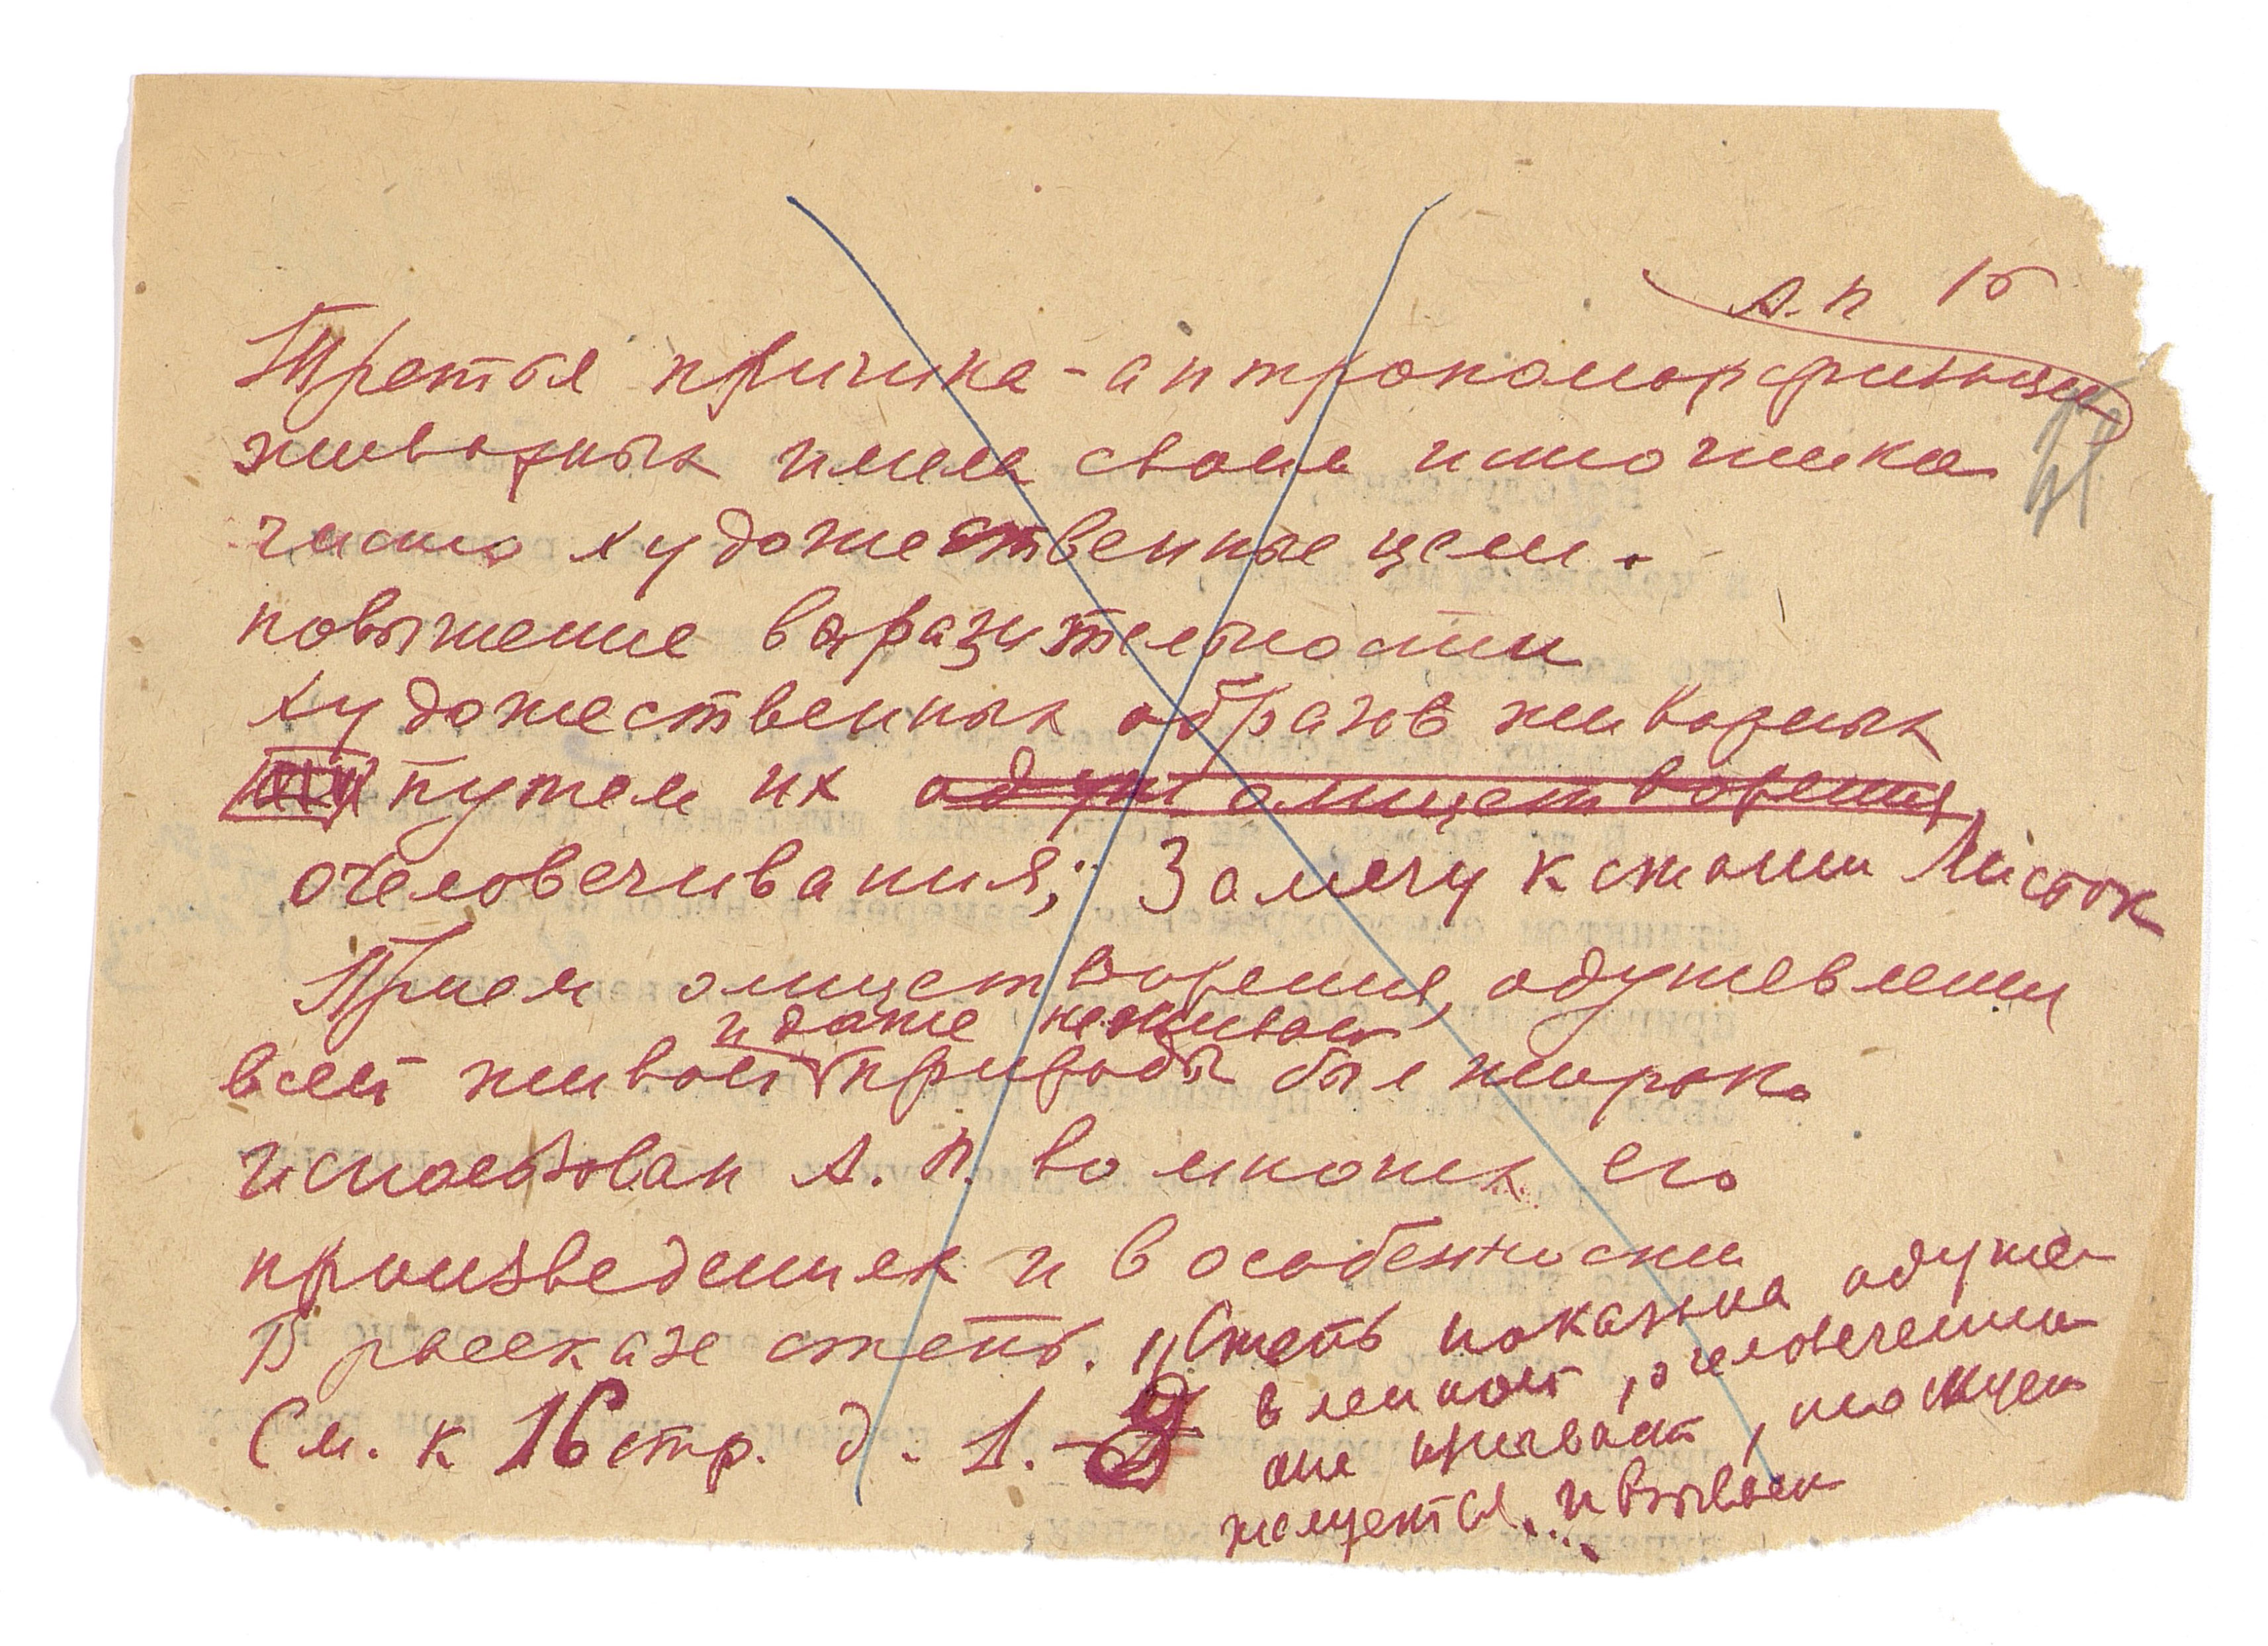 А. П 15
Третья причина - антропоморфизации
животных имела своим источником
чисто художественные цели.
повышение выразительности
художественных образов животных
путем их одуш олицетворения,
очеловечивания; Замечу кстати Листок
Прием олицетворения, одушевления
и даже неживой
всей живой природы был широко
использован А. П. во многих его
произведениях и в особенности
В рассказе степь. Степь показана одуше
вленной, очеловеченна
См. к 16 стр. д. 1. - 2
она, тоскует
жалуется... и взывает